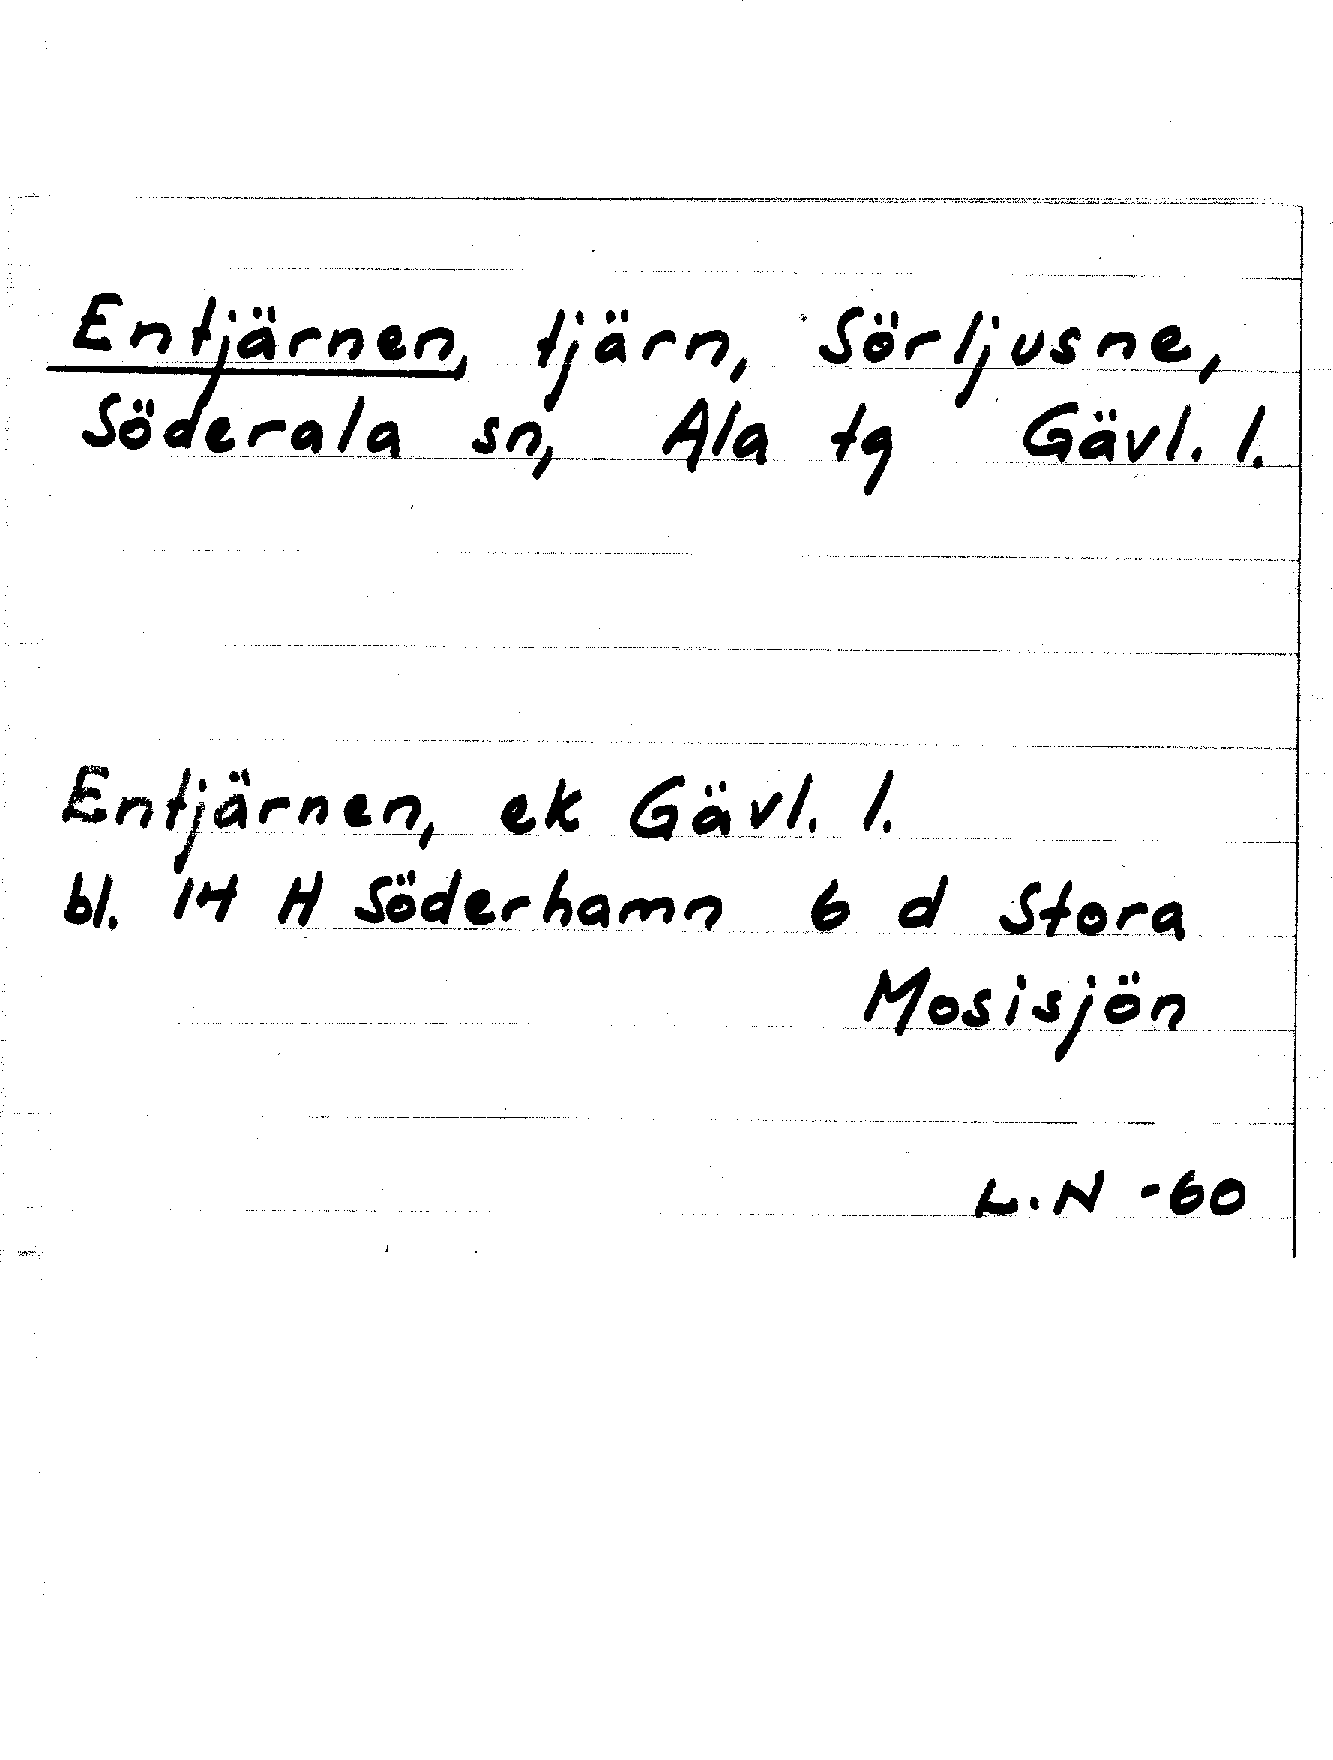 Entjärnen, tjärn, Sörljusne,
Söderala sn, Ala tg Gävl. l.
Entjärnen, ek Gävl. l.
bl. 14 H Söderhamn 6 d Stora
Mosisjön
L.N -60